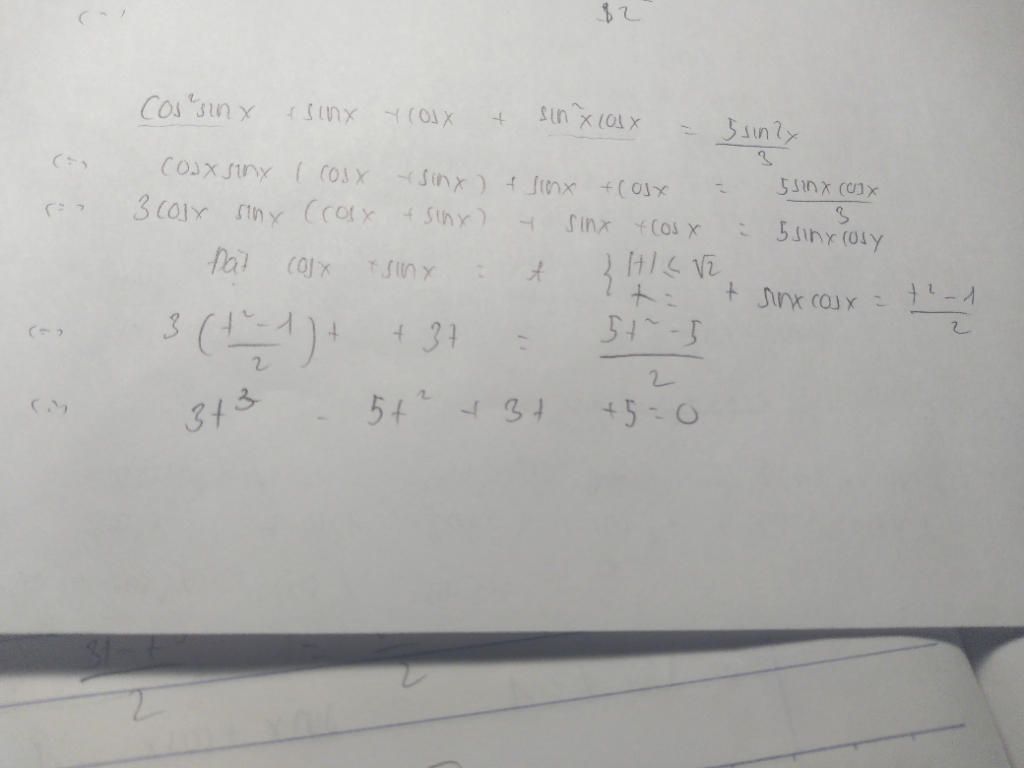 (=)
82
cos²sinx + sinx + cosx + sin²x cosx = 5sin2x/3
(=) cosxsinx (cosx + sinx) + sinx + cosx = 5sinx cosx/3
(=) 3cosx sinx (cosx + sinx) + sinx + cosx = 5sinxcosx
Đặt cosx + sinx = t { |t| ≤ √2
t = + sinxcosx = t² - 1/2
(=) 3(t² - 1/2)t + 3t = 5t² - 5/2
(=) 3t³ - 5t² + 3t + 5 = 0
2
2